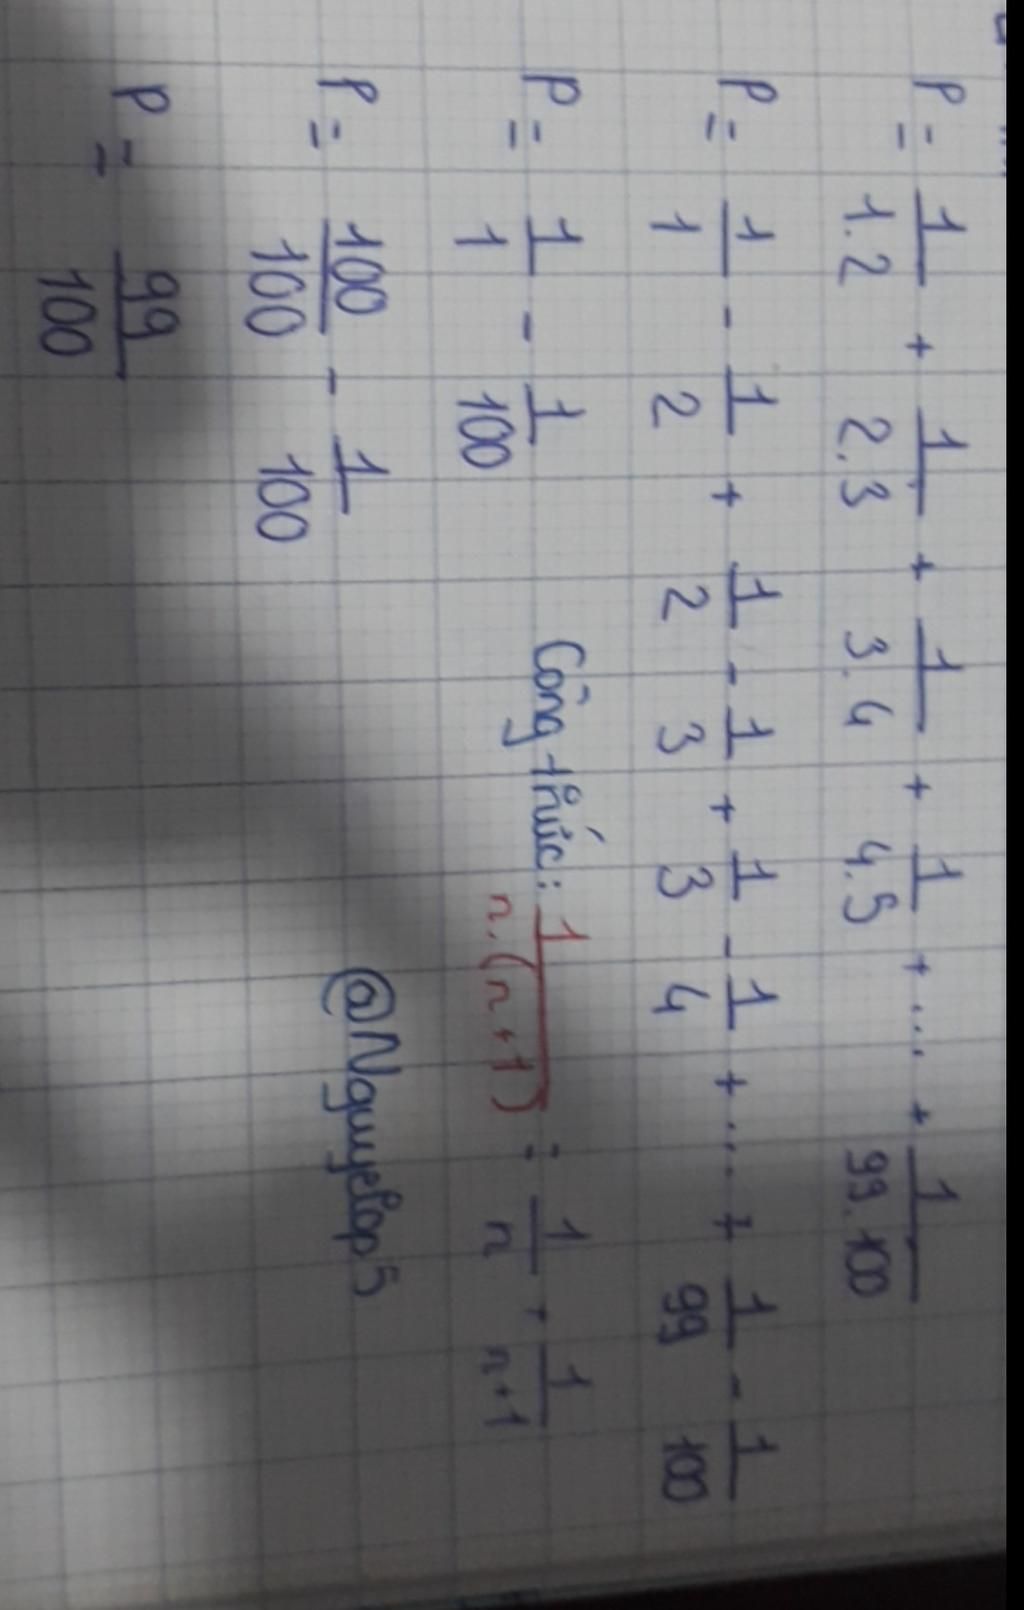 P = 1/1.2 + 1/2.3 + 1/3.4 + 1/4.5 + ... + 1/99.100
P = 1/1 - 1/2 + 1/2 - 1/3 + 1/3 - 1/4 + ... + 1/99 - 1/100
P = 1/1 - 1/100
Công thức: 1/n.(n+1) = 1/n - 1/n+1
P = 100/100 - 1/100
@Nguyelop5
P = 99/100